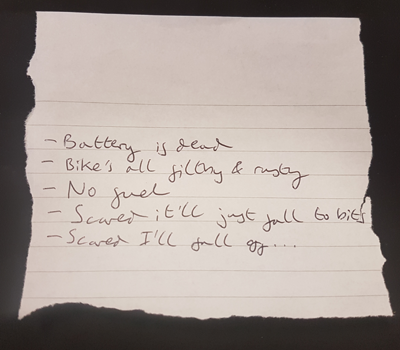 - Battery is dead
- Bike's all filthy & rusty
- No fuel
- Scared it'll just fall to bits
- Scared I'll fall off...